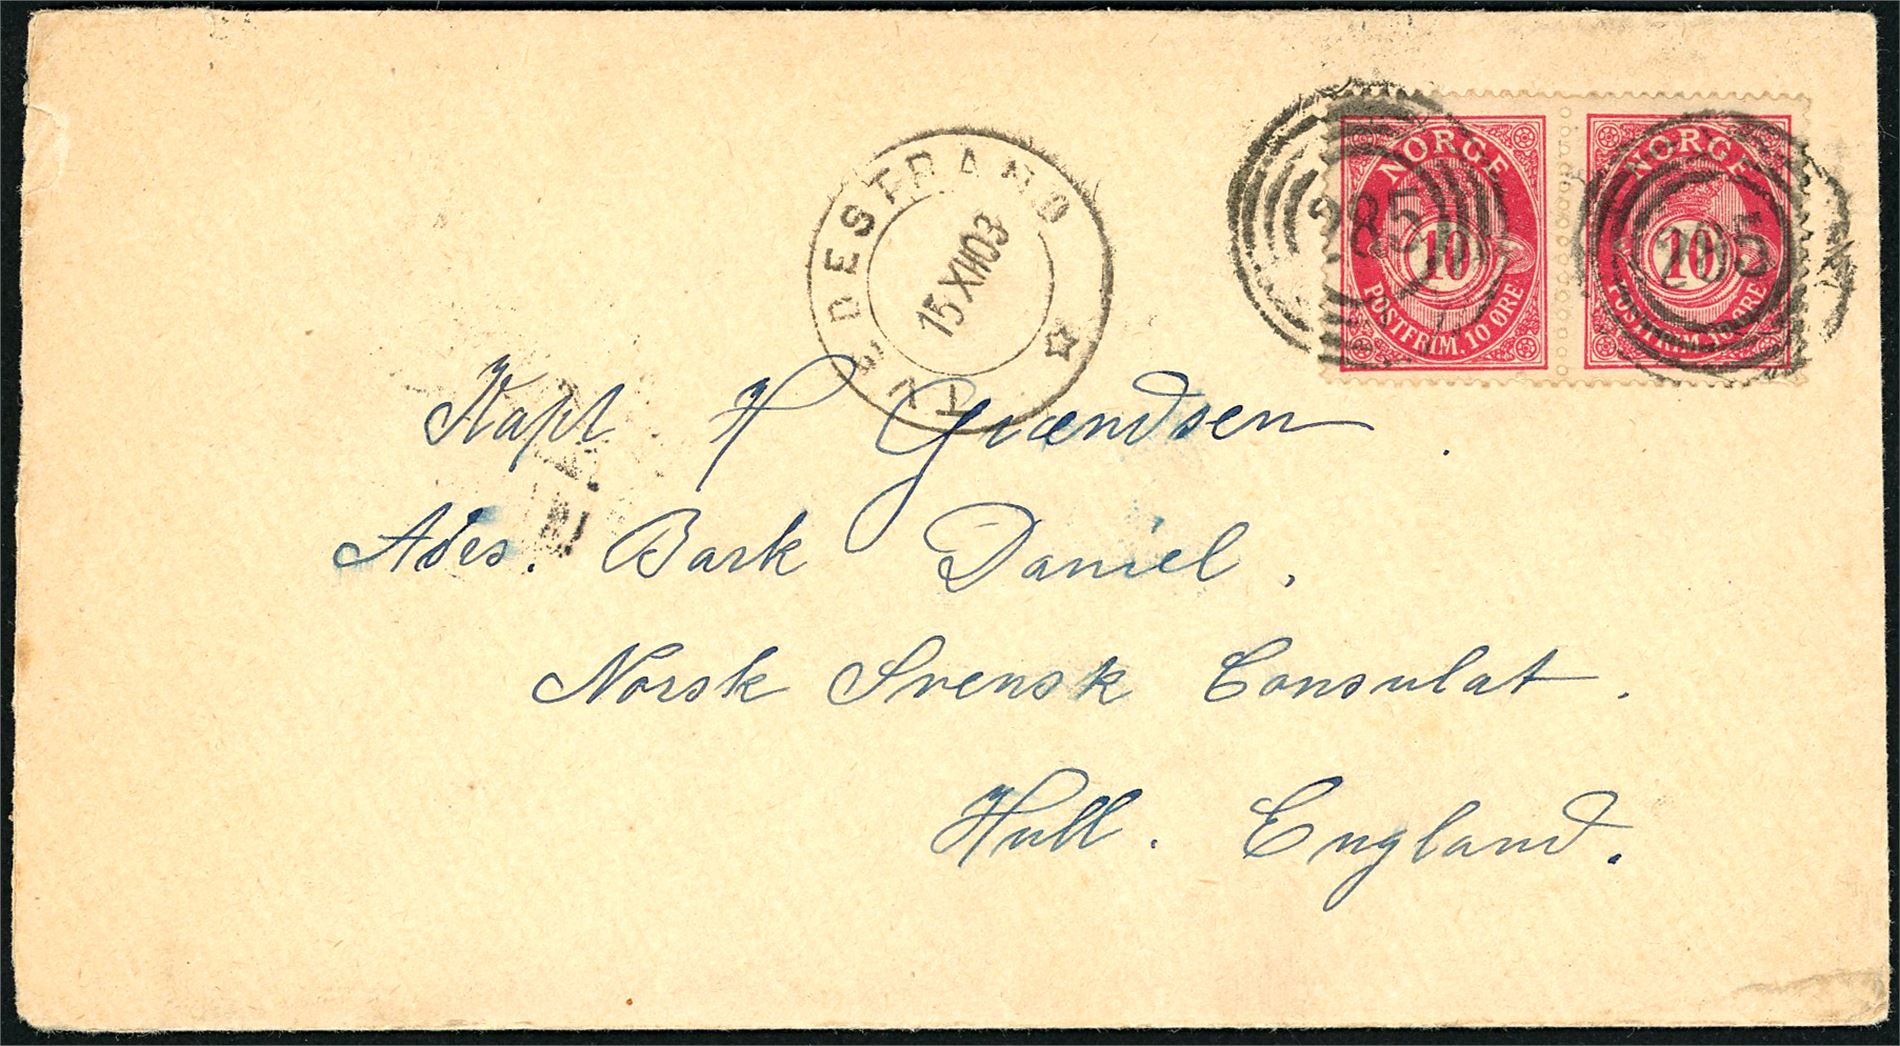 TVEDESTRAND
15 XII 03
NORGE
10
POSTFRIM. 10 ØRE
285
NORGE
10
POSTFRIM. 10 ØRE
285
Kapt H Grændsen
Adrs. Bark Daniel,
Norsk Svensk Consulat.
Hull. England.